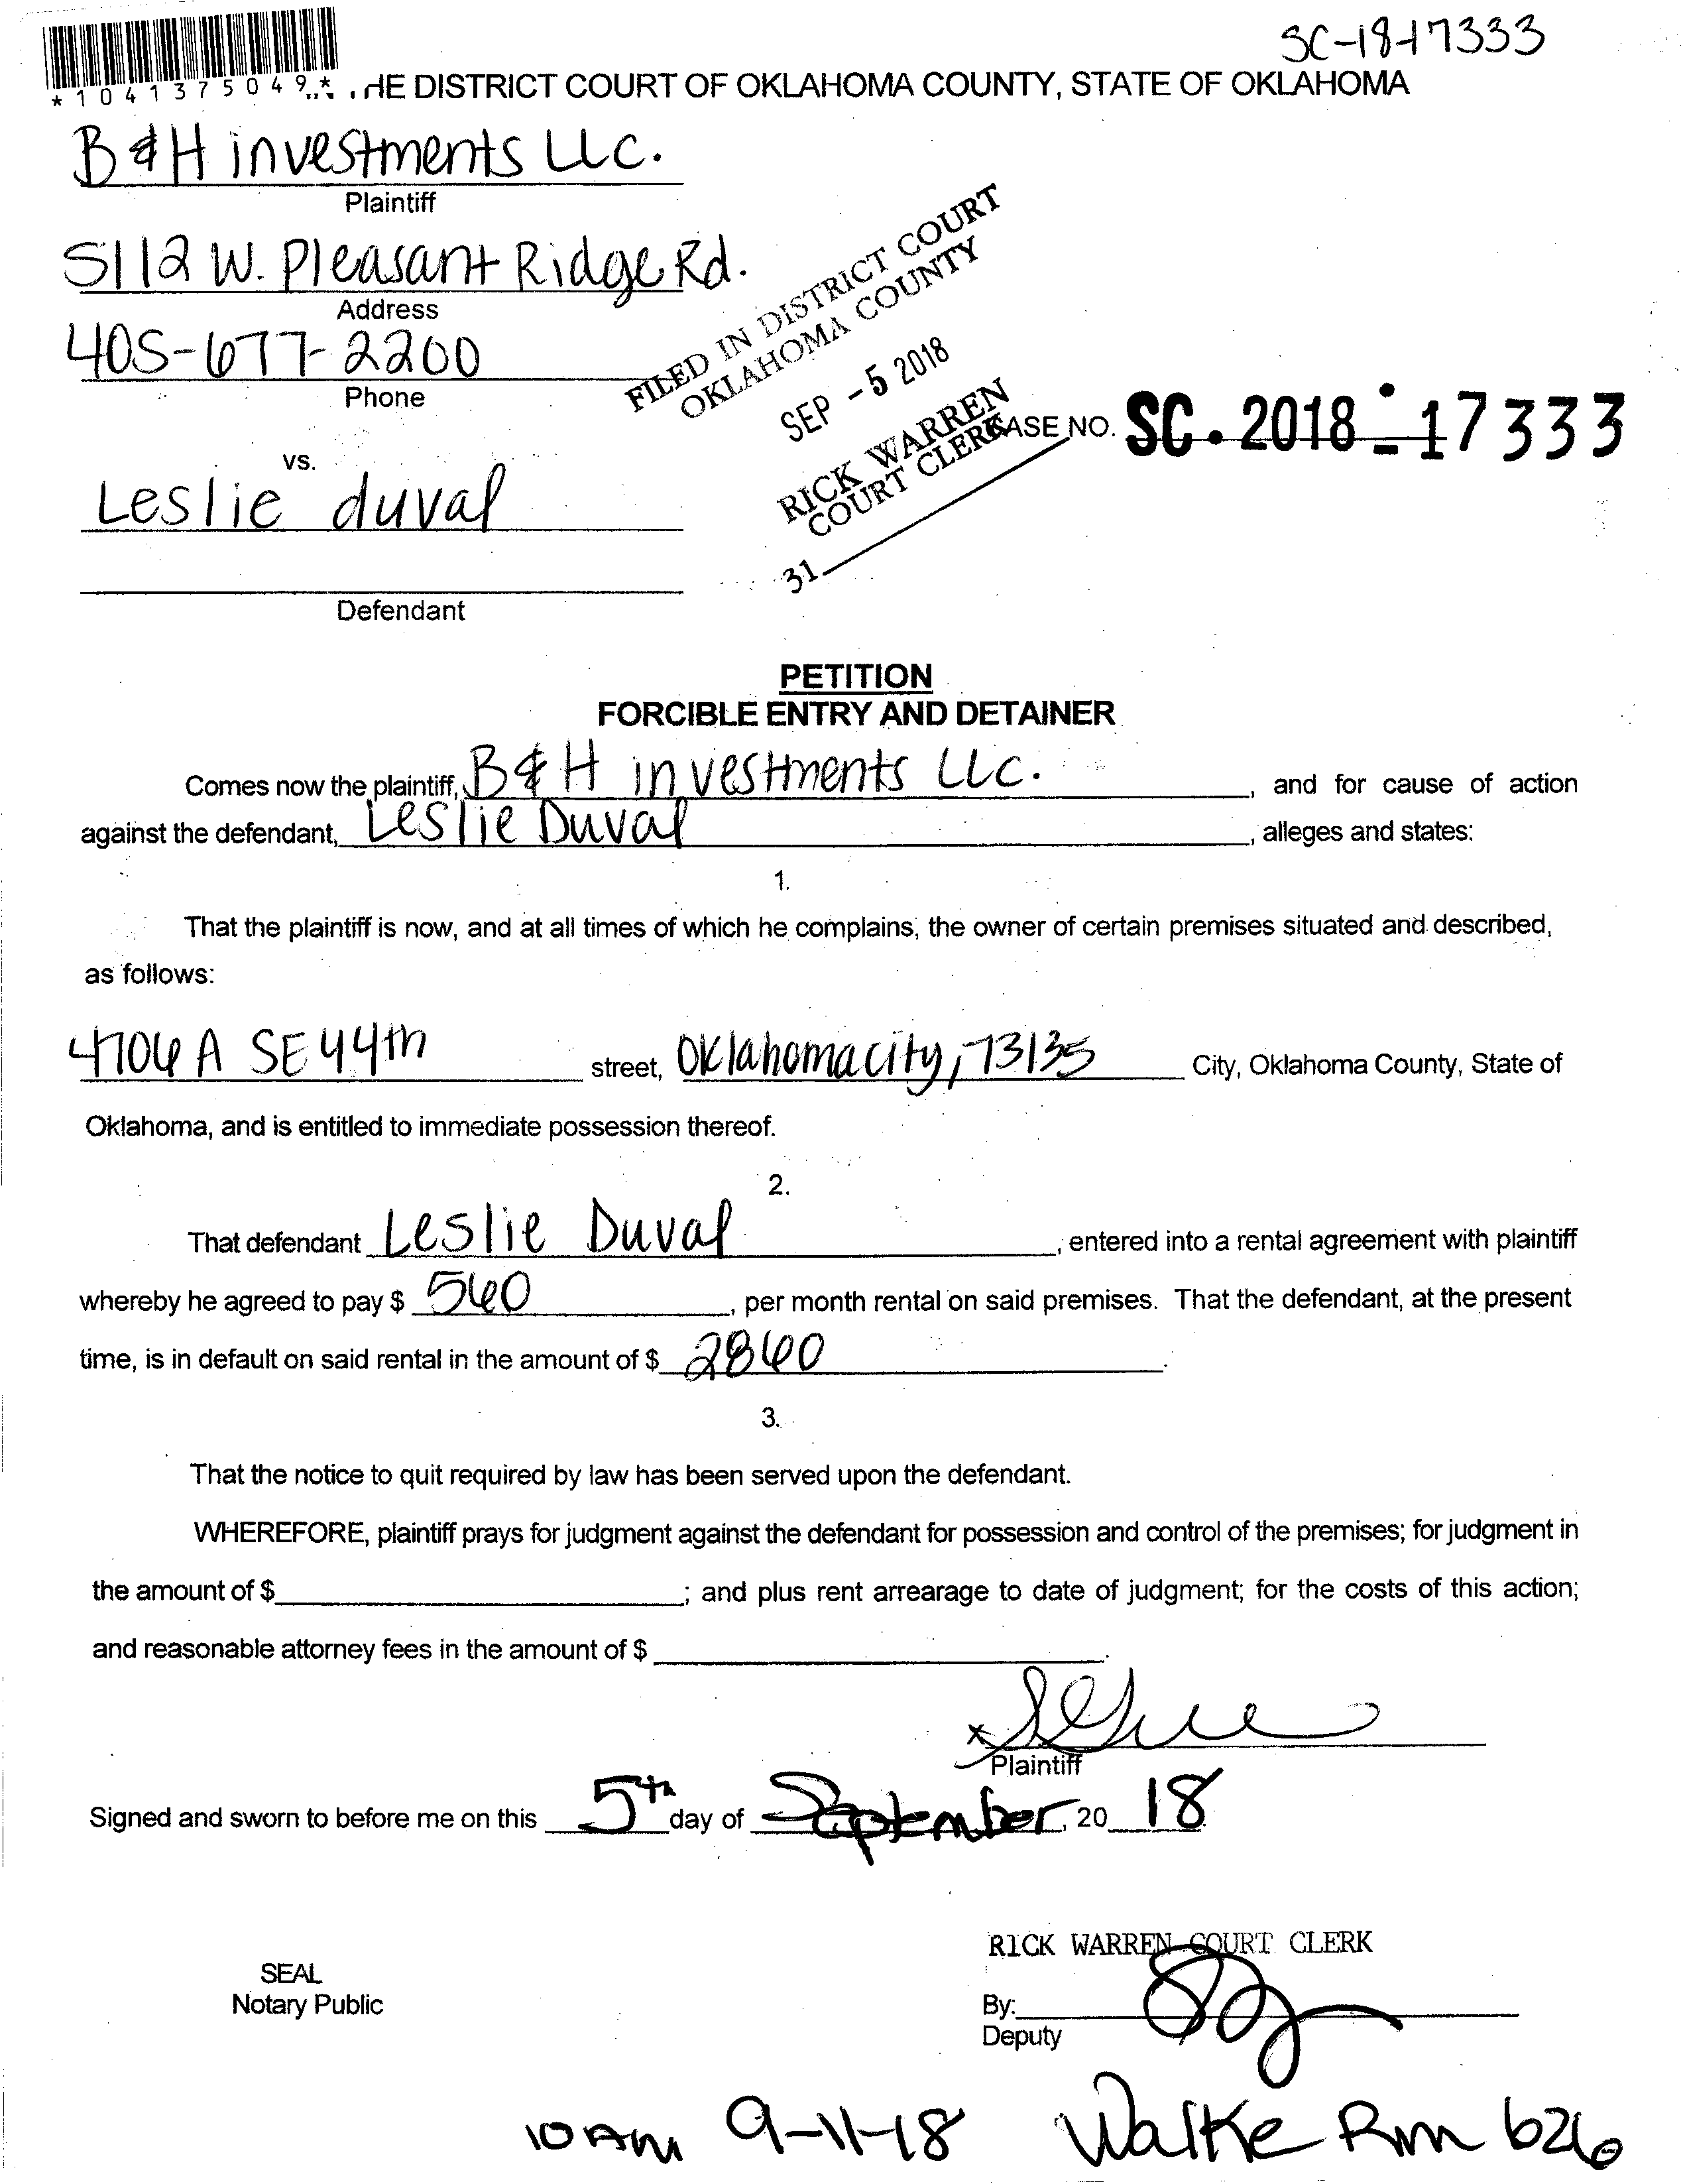 SC-18-17333
*1041375049* HE DISTRICT COURT OF OKLAHOMA COUNTY, STATE OF OKLAHOMA
B & H investments LLC.
Plaintiff
5112 W. Pleasant Ridge Rd.
Address
405-677-2200
Phone
FILED IN DISTRICT COURT
OKLAHOMA COUNTY
SEP - 5 2018
RICK WARREN
COURT CLERK
31
CASE NO. SC. 2018 - 17333
vs.
Leslie duval
Defendant
PETITION
FORCIBLE ENTRY AND DETAINER
Comes now the plaintiff, B & H investments LLC. , and for cause of action
against the defendant, Leslie Duval , alleges and states:
1.
That the plaintiff is now, and at all times of which he complains, the owner of certain premises situated and described,
as follows:
4706 A SE 44th street, Oklahoma city, 73135 City, Oklahoma County, State of
Oklahoma, and is entitled to immediate possession thereof.
2.
That defendant Leslie Duval , entered into a rental agreement with plaintiff
whereby he agreed to pay $ 560 , per month rental on said premises. That the defendant, at the present
time, is in default on said rental in the amount of $ 2860 .
3.
That the notice to quit required by law has been served upon the defendant.
WHEREFORE, plaintiff prays for judgment against the defendant for possession and control of the premises; for judgment in
the amount of $ ; and plus rent arrearage to date of judgment; for the costs of this action;
and reasonable attorney fees in the amount of $ .
x
Plaintiff
Signed and sworn to before me on this 5th day of September, 20 18.
RICK WARREN COURT CLERK
SEAL
Notary Public
By:
Deputy
10 AM 9-11-18 Walke Rm 626